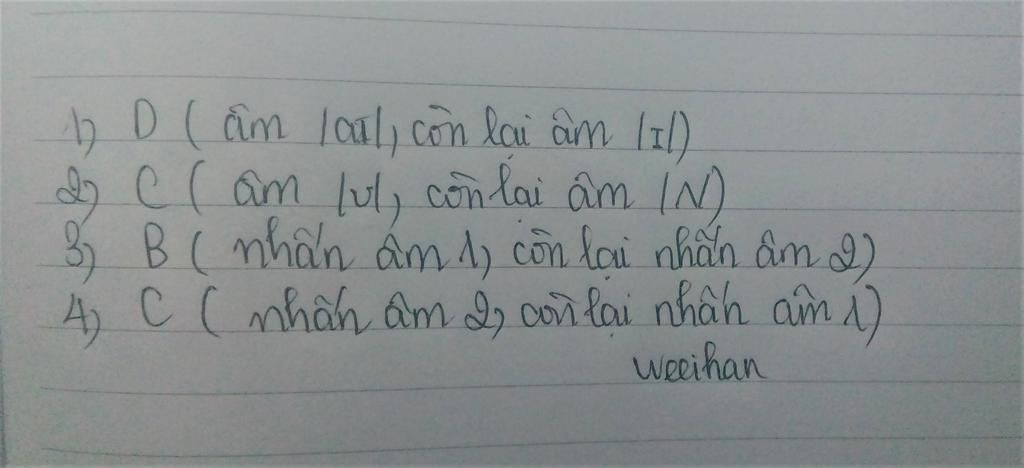 1) D ( âm /aɪ/, còn lại âm /ɪ/)
2) C ( âm /ʊ/, còn lại âm /ʌ/)
3) B ( nhấn âm 1, còn lại nhấn âm 2)
4) C ( nhấn âm 2, còn lại nhấn âm 1)
weeihan